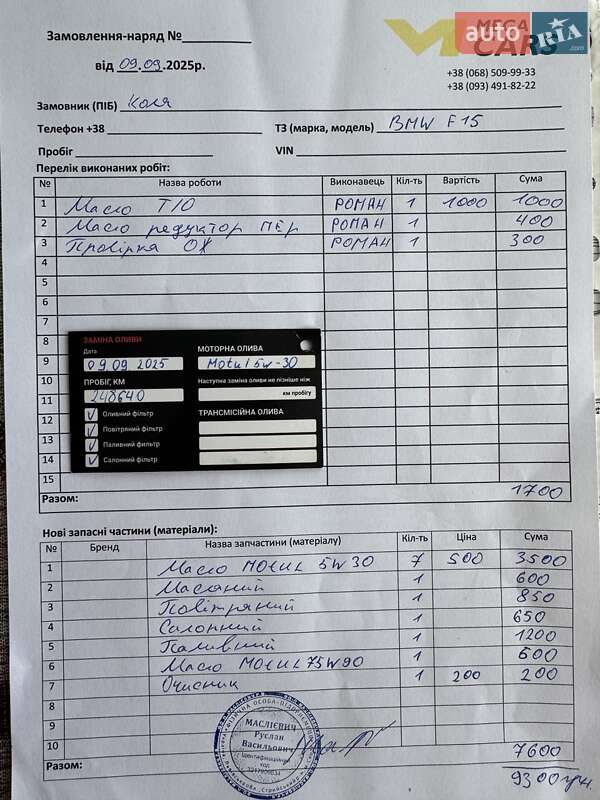 Замовлення-наряд №
від 09.09.2025р.
MEGA CARS
auto RIA.com
+38 (068) 509-99-33
+38 (093) 491-82-22
Замовник (ПІБ) Коля
Телефон +38 ТЗ (марка, модель) BMW F15
Пробіг VIN
Перелік виконаних робіт:
№ Назва роботи Виконавець Кіл-ть Вартість Сума
1 Масло Т/О РОМАН 1 1000 1000
2 Масло редуктор ПЕР РОМАН 1 400
3 Провірка ОЖ РОМАН 1 300
4
5
6
7
8
9
10
11
12
13
14
15
Разом: 1700
ЗАМІНА ОЛИВИ
Дата
09 09 2025
ПРОБІГ, КМ
248640
Оливний фільтр
Повітряний фільтр
Паливний фильтр
Салонний фільтр
МОТОРНА ОЛИВА
Motul 5w-30
Наступна заміна оливи не пізніше ніж
км пробігу
ТРАНСМІСІЙНА ОЛИВА
Нові запасні частини (матеріали):
№ Бренд Назва запчастини (матеріалу) Кіл-ть Ціна Сума
1 Масло MOtUL 5W30 7 500 3500
2 Масляний 1 600
3 Повітряний 1 850
4 Салонний 1 650
5 Паливний 1 1200
6 Масло MOtUL 75W90 1 600
7 Очисник 1 200 200
8
9
10
Разом: 7600
9300грн.
МАСЛІЄВИЧ
Руслан
Васильович
Ідентифікаційний
код